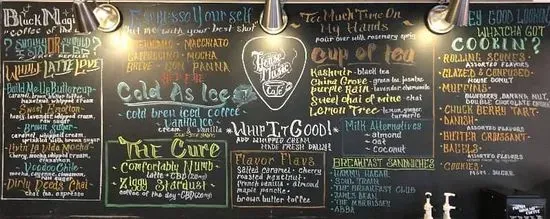 Black Magic
"coffee of the day"
? SMOOTH OR BOLD ?
WHOLE LATTE LOVE
Build Me Up Buttercup-
caramel, brown butter toffee
hazelnut, whipped cream
Sweet Emotion-
honey, lavender, whipped cream
raw sugar
Brown Sugar-
caramel, whipped cream,
brown sugar
White
mocha, cinnamon,
whipped cream
Voodoo Chile-
mocha, cayenne, cinnamon,
whipped cream
Dirty Deeds Chai-
espresso, chai
Espresso Yourself
hit me with your best shot
AMERICANO - MACCHIATO
CAPPUCCINO - MOCHA
BREVE - CON PANNA
RED EYE
Cold As Ice
cold brew iced coffee
Vanilla Ice -
cream + vanilla
THE CURE
Comfortably Numb
latte + CBD (20mg)
Ziggy Stardust -
coffee of the day + CBD (20mg)
House
of Music
cafe
*WHIP IT GOOD!
ADD WHIPPED CREAM
MADE FRESH DAILY!
Flavor Flavs
Salted caramel - cherry
roasted hazelnut -
french vanilla - almond
maple - pancake -
brown butter toffee
Too Much Time On
My Hands
pour over with rosemary sprig
Cup of Tea
Kashmir - black tea
China Grove - green tea, jasmine
Purple Rain - lavender, chamomile
Sweet chai of mine - chai
Lemon Tree - lemon, ginger,
turmeric
Milk Alternatives
- almond
- oat
- Coconut
BREAKFAST SANDWICHES
- SAMMY HAGAR
- SOUL TRAIN
- THE BREAKFAST CLUB
- JOAN BAEZ
- THE MORRISSEY
- ABBA
HEY GOOD LOOKIN'
WHATCHA GOT
COOKIN'?
- ROLLING SCONES -
ASSORTED FLAVORS
- GLAZED & CONFUSED -
HOUSE DONUT
- MUFFINS -
BLUEBERRY, BANANA NUT,
DOUBLE CHOCOLATE CHUNK
- CHUCK BERRY TART
- DANISH -
ASSORTED FLAVORS
- BUTTER CROISSANT
- BAGELS -
ASSORTED FLAVORS
- COOKIES -